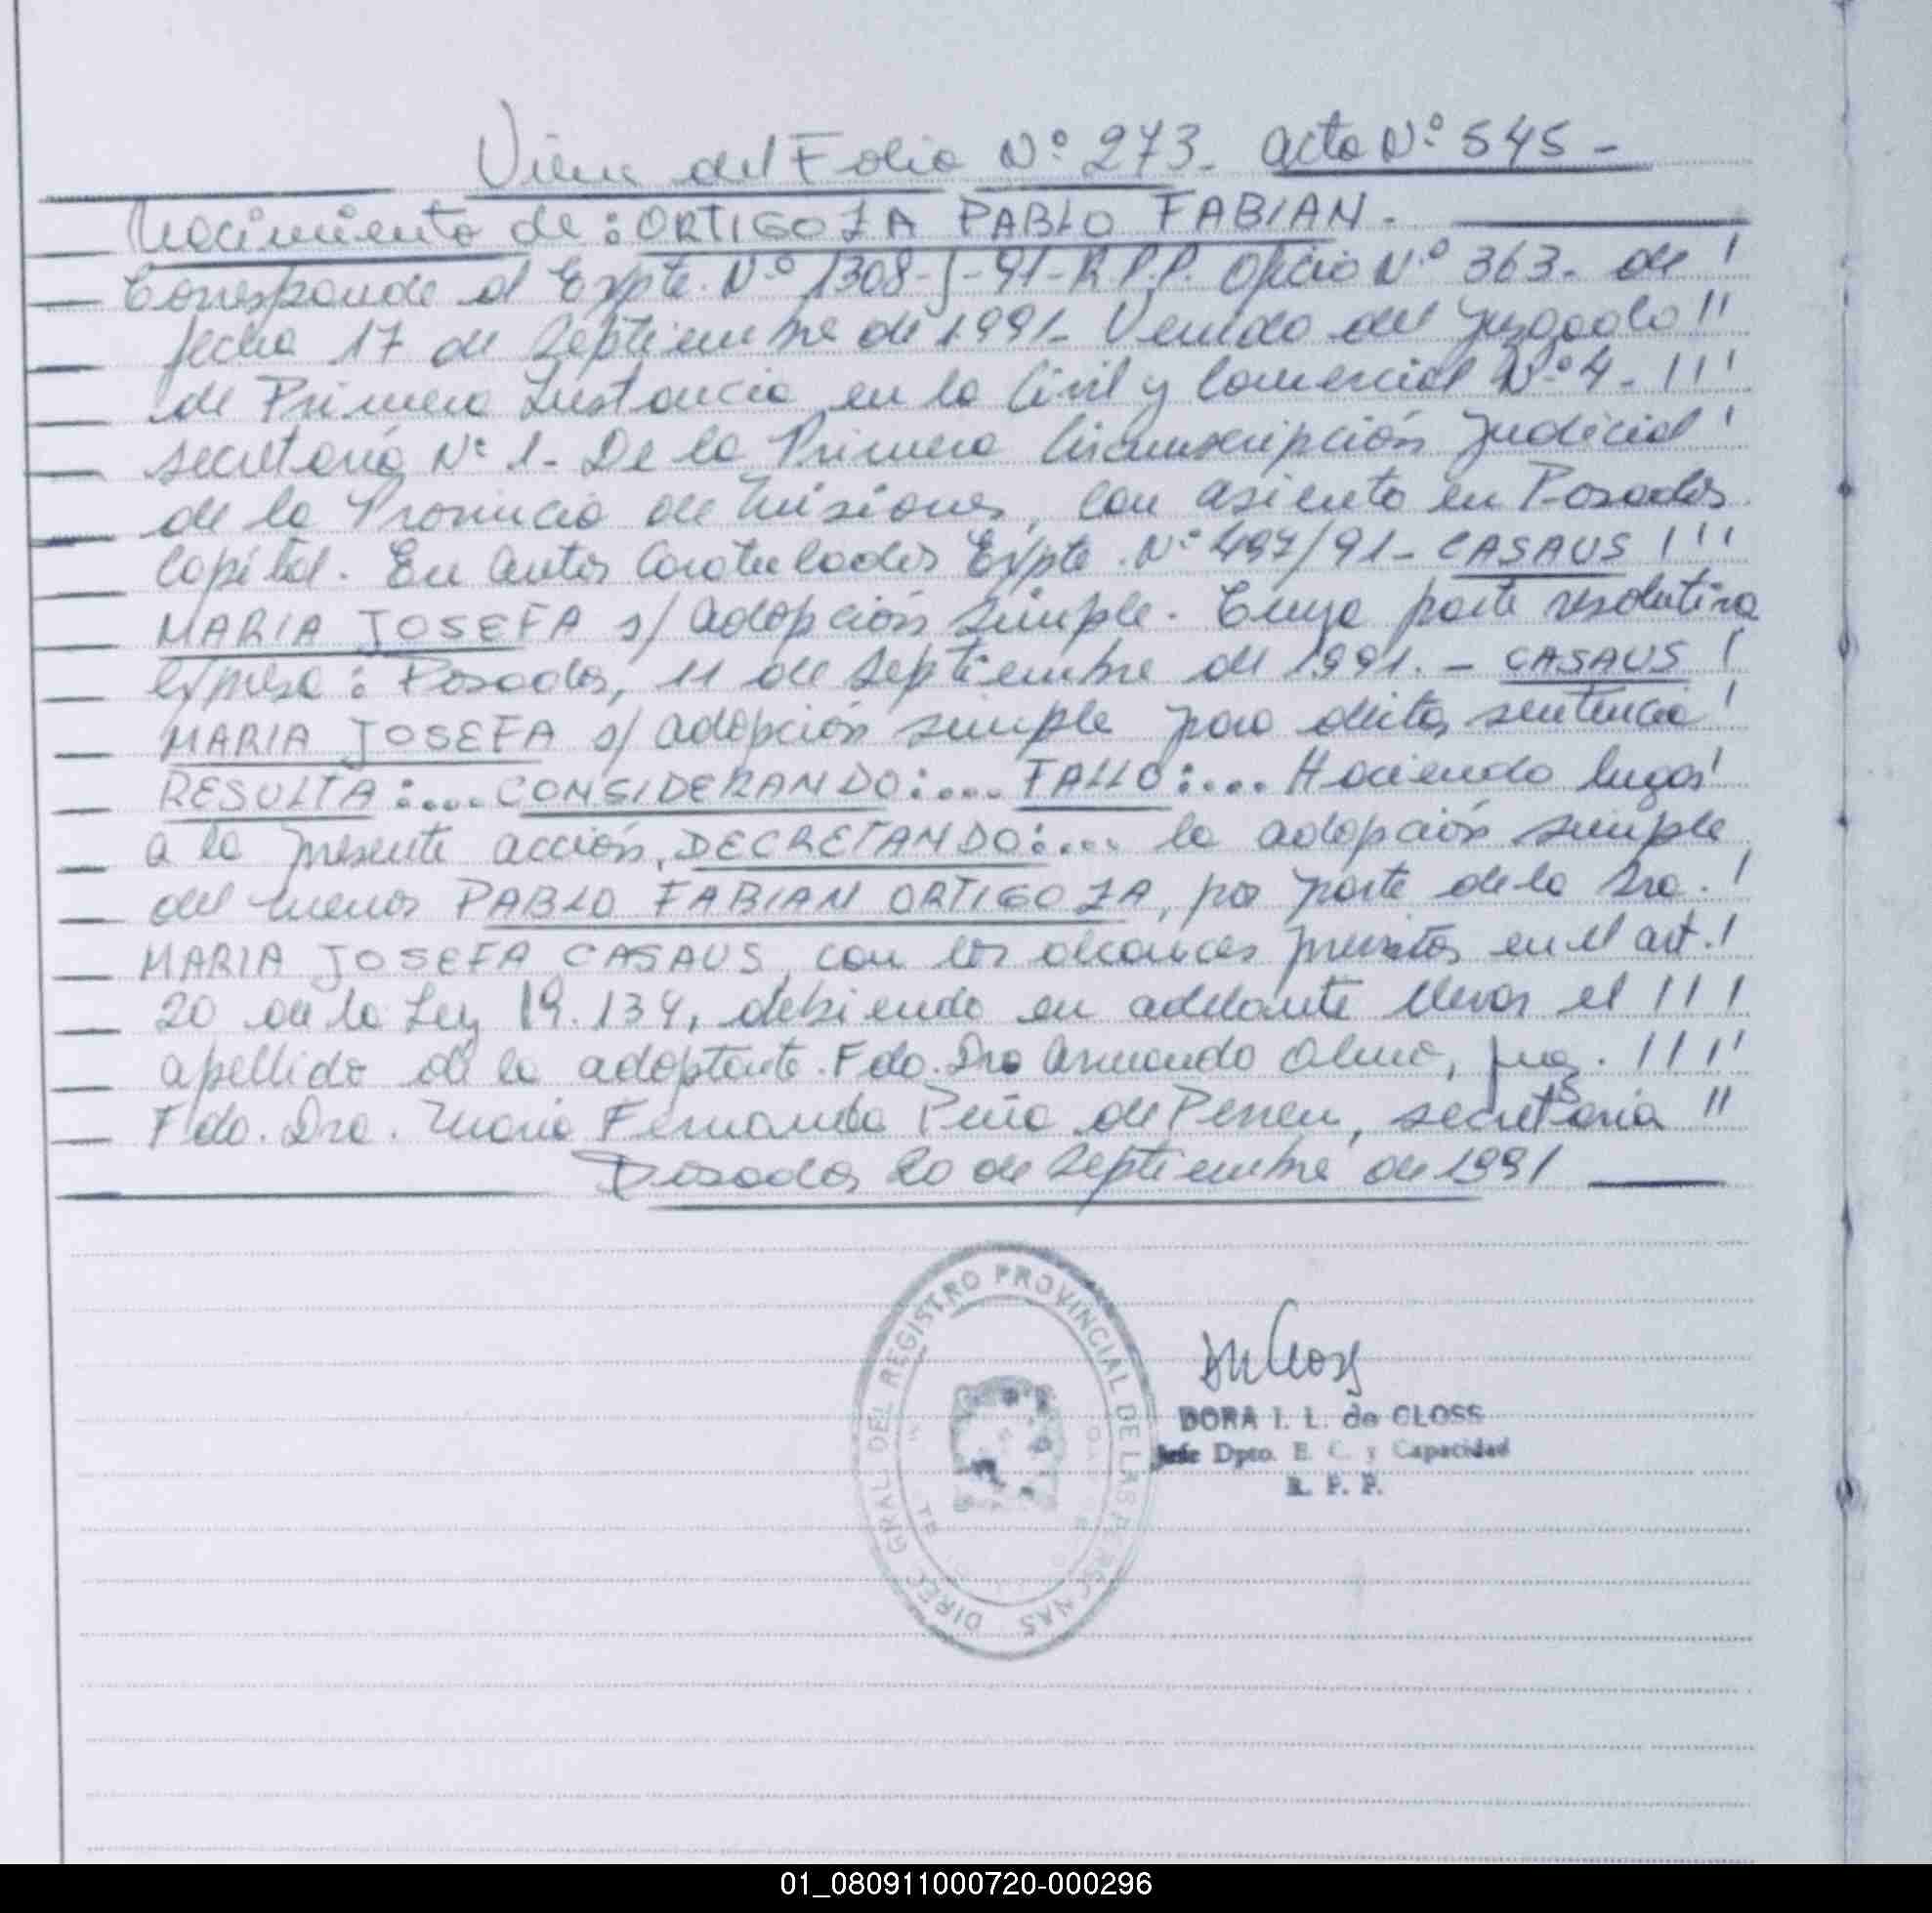 Viene del Folio Nº 273- acta Nº 545-
Nacimiento de: ORTIGOZA PABLO FABIAN.
Corresponde al Expte. Nº 1308-J-91-R.P.P. Oficio Nº 363- de !
fecha 17 de Septiembre de 1991- Venido del Juzgado !!
de Primera Instancia en lo Civil y Comercial Nº 4- !!!
secretaría Nº 1- De la Primera Circunscripción Judicial !
de la Provincia de Misiones, con asiento en Posadas
Capital. En autos Caratulados Expte. Nº 497/91- CASAUS !!!
MARIA JOSEFA s/ adopción simple. Cuya parte resolutiva
expresa: Posadas, 11 de septiembre de 1991.- CASAUS !
MARIA JOSEFA s/ adopción simple para dictar sentencia !
RESULTA:.... CONSIDERANDO:.... FALLO:.... Haciendo lugar !
a la presente acción, DECRETANDO:.... la adopción simple
del menor PABLO FABIAN ORTIGOZA, por parte de la Sra. !
MARIA JOSEFA CASAUS, con los alcances previstos en el art. !
20 de la Ley 19.134, debiendo en adelante llevar el !!!
apellido de la adoptante. Fdo. Dro Armando juez. !!!!
Fdo. Dra. Maria Fernanda Peña de secretaria !!
Posadas 20 de Septiembre de 1991
DIREC. GRAL. DEL REGISTRO PROVINCIAL DE LAS PERSONAS
DORA I. L. de CLOSS
Jefe Dpto. E. C. y Capacidad
R. P. P.
01_080911000720-000296